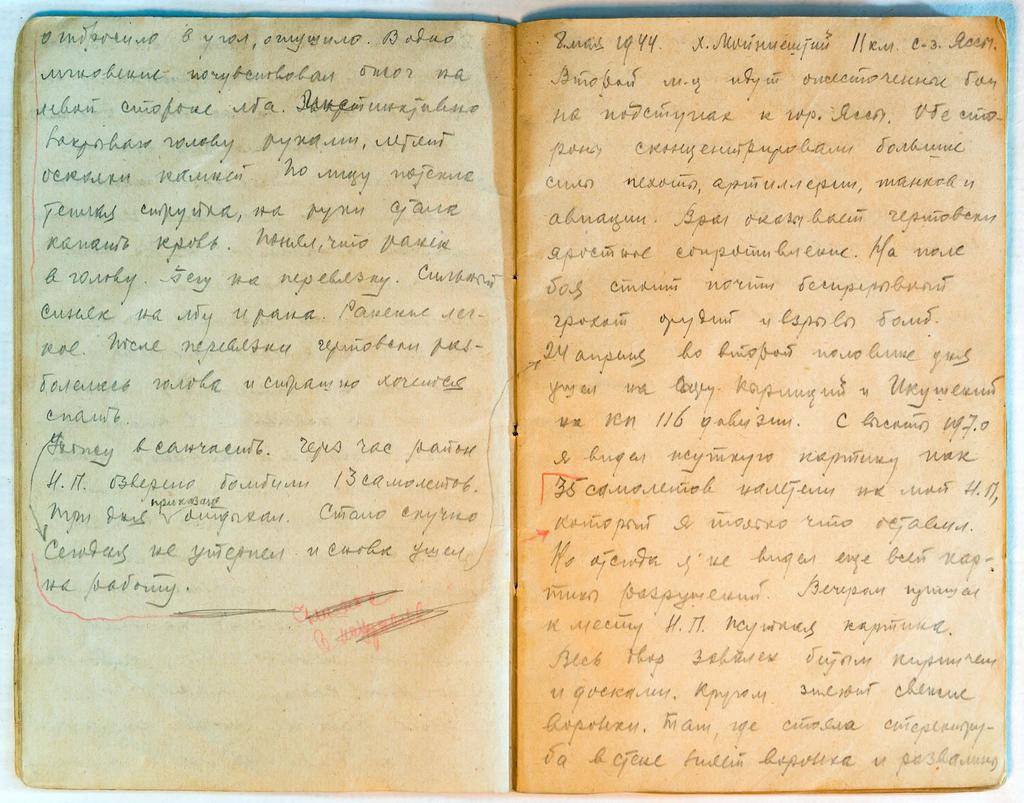 отбросило в угол, оглушило. В одно
мгновение почувствовал ожог на
левой стороне лба. Инстинктивно
закрываю голову руками, летят
осколки камней. По лицу потекла
теплая струйка, на руки стала
капать кровь. Понял, что ранен
в голову. Бегу на перевязку. Сильный
синяк на лбу и рана. Ранение лег-
кое. После перевязки чертовски раз-
болелась голова и страшно хочется
спать
в санчасть. Через час район
Н.П. озверело бомбили 13 самолетов.
Три дня приказано отдыхал. Стало скучно
Сегодня не утерпел и снова ушел
на работу.
8 мая 1944. х. Мойнешты 11 км. с-з. Яссы.
Второй м-ц идут ожесточенные бои
на подступах к гор. Яссы. Обе сто-
роны сконцентрировали большие
силы пехоты, артиллерии, танков и
авиации. Враг оказывает чертовски
яростное сопротивление. На поле
боя стоит почти беспрерывный
грохот орудий и взрывы бомб.
24 апреля во второй половине дня
ушел на и
на КП 116 дивизии. С высоты 197.0
я видел жуткую картину как
35 самолетов налетели на мой Н.П,
который я только что оставил.
Но отсюда я не видел еще всей кар-
тины разрушений. Вечером пришел
к месту Н.П. Жуткая картина.
Весь двор завален битым кирпичем
и досками. Кругом зияют свежие
воронки. Там, где стояла стереотру-
ба в стене зияет воронка и развалины